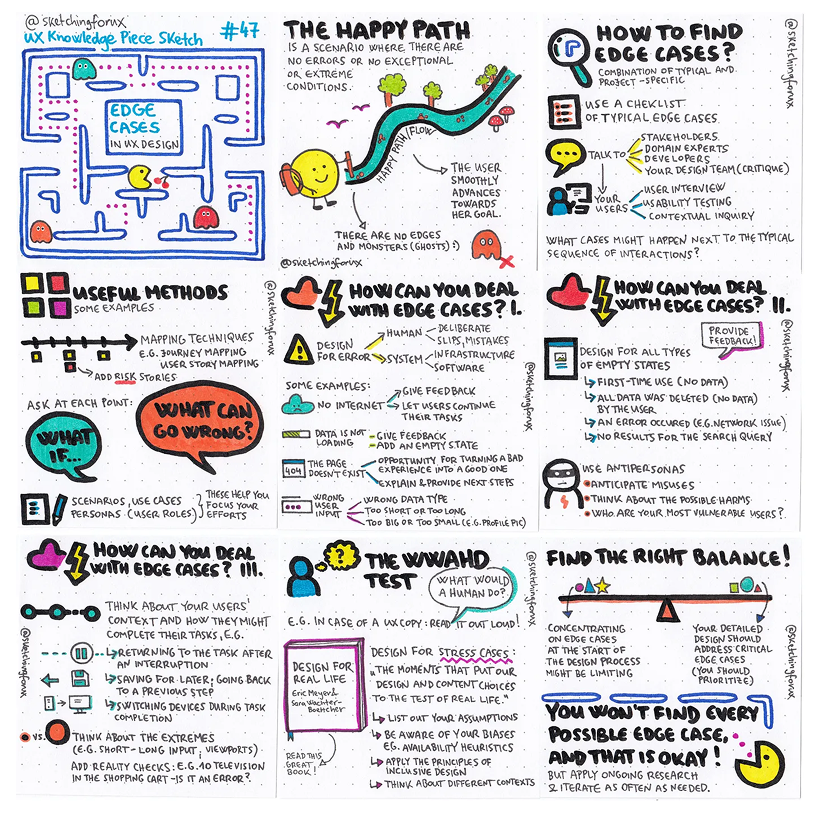 @sketchingforux
UX Knowledge Piece Sketch
#47
EDGE
CASES
IN UX DESIGN
THE HAPPY PATH
IS A SCENARIO WHERE THERE ARE
NO ERRORS OR NO EXCEPTIONAL
OR EXTREME
CONDITIONS.
HAPPY PATH/FLOW
THE USER
SMOOTHLY
ADVANCES
TOWARDS
HER GOAL.
THERE ARE NO EDGES
AND MONSTERS (GHOSTS) :)
@sketchingforux
HOW TO FIND
EDGE CASES?
COMBINATION OF TYPICAL AND
PROJECT-SPECIFIC
@sketchingforux
USE A CHEKLIST
OF TYPICAL EDGE CASES
TALK TO
STAKEHOLDERS
DOMAIN EXPERTS
DEVELOPERS
YOUR DESIGN TEAM (CRITIQUE)
YOUR
USERS
USER INTERVIEW
USABILITY TESTING
CONTEXTUAL INQUIRY
WHAT CASES MIGHT HAPPEN NEXT TO THE TYPICAL
SEQUENCE OF INTERACTIONS?
USEFUL METHODS
SOME EXAMPLES
@sketchingforux
MAPPING TECHNIQUES
E.G. JOURNEY MAPPING
USER STORY MAPPING
ADD RISK STORIES
ASK AT EACH POINT:
WHAT
IF...
WHAT CAN
GO WRONG?
SCENARIOS, USE CASES
PERSONAS (USER ROLES)
THESE HELP YOU
FOCUS YOUR
EFFORTS
HOW CAN YOU DEAL
WITH EDGE CASES? I.
DESIGN
FOR ERROR
HUMAN
DELIBERATE
SLIPS, MISTAKES
SYSTEM
INFRASTRUCTURE
SOFTWARE
@sketchingforux
SOME EXAMPLES:
NO INTERNET
GIVE FEEDBACK
LET USERS CONTINUE
THEIR TASKS
DATA IS NOT
LOADING
GIVE FEEDBACK
ADD AN EMPTY STATE
404
THE PAGE
DOESN'T EXIST
OPPORTUNITY FOR TURNING A BAD
EXPERIENCE INTO A GOOD ONE
EXPLAIN & PROVIDE NEXT STEPS
WRONG
USER
INPUT
WRONG DATA TYPE
TOO SHORT OR TOO LONG
TOO BIG OR TOO SMALL (E.G. PROFILE PIC)
HOW CAN YOU DEAL
WITH EDGE CASES? II.
PROVIDE
FEEDBACK!
@sketchingforux
DESIGN FOR ALL TYPES
OF EMPTY STATES
FIRST-TIME USE (NO DATA)
ALL DATA WAS DELETED (NO DATA)
BY THE USER
AN ERROR OCCURED (E.G. NETWORK ISSUE)
NO RESULTS FOR THE SEARCH QUERY
USE ANTIPERSONAS
ANTICIPATE MISUSES
THINK ABOUT THE POSSIBLE HARMS
WHO ARE YOUR MOST VULNERABLE USERS?
HOW CAN YOU DEAL
WITH EDGE CASES? III.
@sketchingforux
THINK ABOUT YOUR USERS'
CONTEXT AND HOW THEY MIGHT
COMPLETE THEIR TASKS, E.G.
RETURNING TO THE TASK AFTER
AN INTERRUPTION
SAVING FOR LATER; GOING BACK
TO A PREVIOUS STEP
SWITCHING DEVICES DURING TASK
COMPLETION
VS.
THINK ABOUT THE EXTREMES
(E.G. SHORT - LONG INPUT; VIEWPORTS)
ADD REALITY CHECKS: E.G. 10 TELEVISION
IN THE SHOPPING CART - IS IT AN ERROR?
THE WWAHD
TEST
WHAT WOULD
A HUMAN DO?
@sketchingforux
E.G. IN CASE OF A UX COPY: READ IT OUT LOUD!
DESIGN FOR
REAL LIFE
Eric Meyer &
Sara Wachter-
Boettcher
READ THIS
GREAT
BOOK!
DESIGN FOR STRESS CASES:
"THE MOMENTS THAT PUT OUR
DESIGN AND CONTENT CHOICES
TO THE TEST OF REAL LIFE."
LIST OUT YOUR ASSUMPTIONS
BE AWARE OF YOUR BIASES
EG. AVAILABILITY HEURISTICS
APPLY THE PRINCIPLES OF
INCLUSIVE DESIGN
THINK ABOUT DIFFERENT CONTEXTS
FIND THE RIGHT BALANCE!
CONCENTRATING
ON EDGE CASES
AT THE START OF
THE DESIGN PROCESS
MIGHT BE LIMITING
YOUR DETAILED
DESIGN SHOULD
ADDRESS CRITICAL
EDGE CASES
(YOU SHOULD
PRIORITIZE)
@sketchingforux
YOU WON'T FIND EVERY
POSSIBLE EDGE CASE,
AND THAT IS OKAY!
BUT APPLY ONGOING RESEARCH
& ITERATE AS OFTEN AS NEEDED.